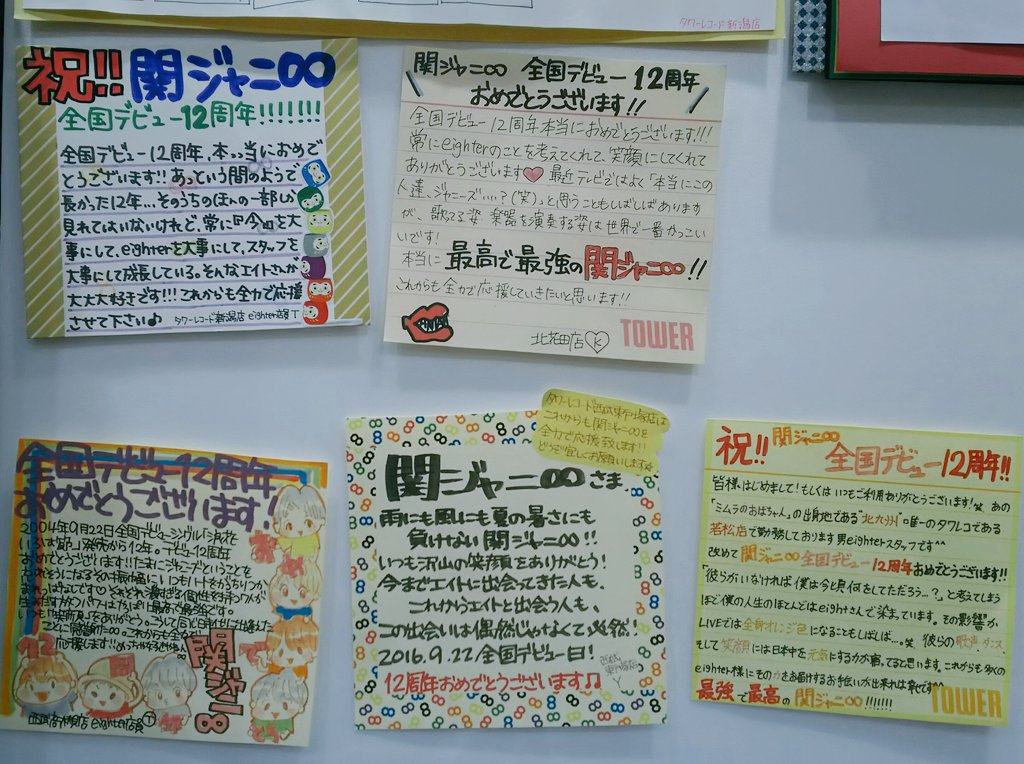 タワーレコード新潟店
祝!! 関ジャニ∞
全国デビュー12周年!!!!!!!
全国デビュー12周年、本っっ当におめで
とうございます!! あっという間のようで
長かった12年…そのうちのほんの一部しか
見れてはいないけれど、常に『今』を大
事にして、eighterを大事にして、スタッフを
大事にして成長している。そんなエイトさんが
大大大好きです!!! これからも全力で応援
させて下さい♪ タワーレコード新潟店 eighter店員T
関ジャニ∞ 全国デビュー12周年
おめでとうございます!!
全国デビュー12周年本当におめでとうございます!!!
常にeighterのことを考えてくれて、笑顔にしてくれて
ありがとうございます♥ 最近テレビではよく「本当にこの
人達、ジャニーズ…?(笑)」と思うこともしばしばあります
が、歌ってる姿 楽器を演奏する姿は世界で一番かっこい
いです!
本当に 最高で最強の関ジャニ∞!!
これからも全力で応援していきたいと思います!!
北花田店 K
TOWER
全国デビュー12周年
おめでとうございます!
2004年9月22日全国デビューシングル「浪花
いろは節」発売から12年。デビュー12周年
おめでとうございます!!
応援します!
関ジャニ8
eighter店員
タワーレコード西武東戸塚店は
これからも関ジャニ∞を
全力で応援致します!!
どうぞ宜しくお願いします☆
関ジャニ∞さま
雨にも風にも夏の暑さにも
負けない関ジャニ∞!!
いつも沢山の笑顔をありがとう!
今までエイトに出会ってきた人も、
これからエイトと出会う人も、
この出会いは偶然じゃなくて必然!
2016.9.22/全国デビュー日!
12周年おめでとうございます♫
西武
東戸塚店
Y
祝!! 関ジャニ∞
全国デビュー12周年!!
皆様はじめまして!もしくはいつもご利用ありがとうございます!^^ あの
「ミムラのおばちゃん」の出身地である"北九州"唯一のタワレコである
若松店で勤務しております男eighterスタッフです^^
改めて 関ジャニ∞全国デビュー12周年おめでとうございます!!
「彼らがいなければ僕は今と何をしてただろう…?」と考えてしまう
ほど僕の人生のほとんどはeightさんで染まっています。その影響か
LIVEでは全身オレンジ色になることもしばしば…笑 彼らの歌声、ダンス、
そして笑顔には日本中を元気にする力が宿ってると思います。これからも多くの
eighter様にその力をお届けするお手伝いが出来れば幸せです^^
最強で最高の関ジャニ∞!!!!!!!
TOWER